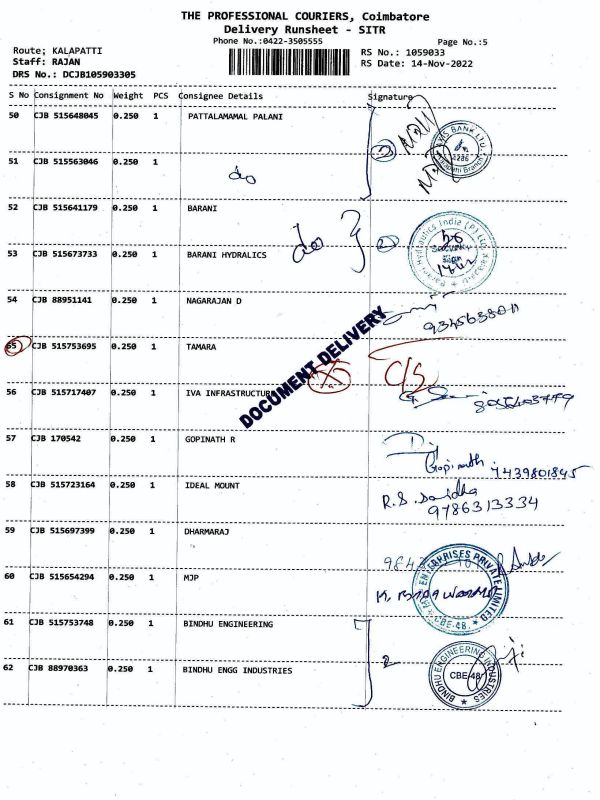 THE PROFESSIONAL COURIERS, Coimbatore
Delivery Runsheet - SITR
Phone No.:0422-3505555
Page No.:5
Route; KALAPATTI
RS No.: 1059033
Staff: RAJAN
RS Date: 14-Nov-2022
DRS No.: DCJB105903305
S No Consignment No Weight PCS Consignee Details Signature
50 CJB 515648045 0.250 1 PATTALAMAMAL PALANI
51 CJB 515563046 0.250 1
do
52 CJB 515641179 0.250 1 BARANI
do
53 CJB 515673733 0.250 1 BARANI HYDRALICS
54 CJB 88951141 0.250 1 NAGARAJAN D
55 CJB 515753695 0.250 1 TAMARA
C/S
DOCUMENT DELIVERY
56 CJB 515717407 0.250 1 IVA INFRASTRUCTUR
57 CJB 170542 0.250 1 GOPINATH R
Gopinath.
7439801845
58 CJB 515723164 0.250 1 IDEAL MOUNT
R.S.
9786313334
59 CJB 515697399 0.250 1 DHARMARAJ
60 CJB 515654294 0.250 1 MJP
ENTERPRISES PRIVATE LIMITED
CBE-48.
61 CJB 515753748 0.250 1 BINDHU ENGINEERING
62 CJB 88970363 0.250 1 BINDHU ENGG INDUSTRIES
2
BINDHU ENGINEERING INDUSTRIES
CBE-48